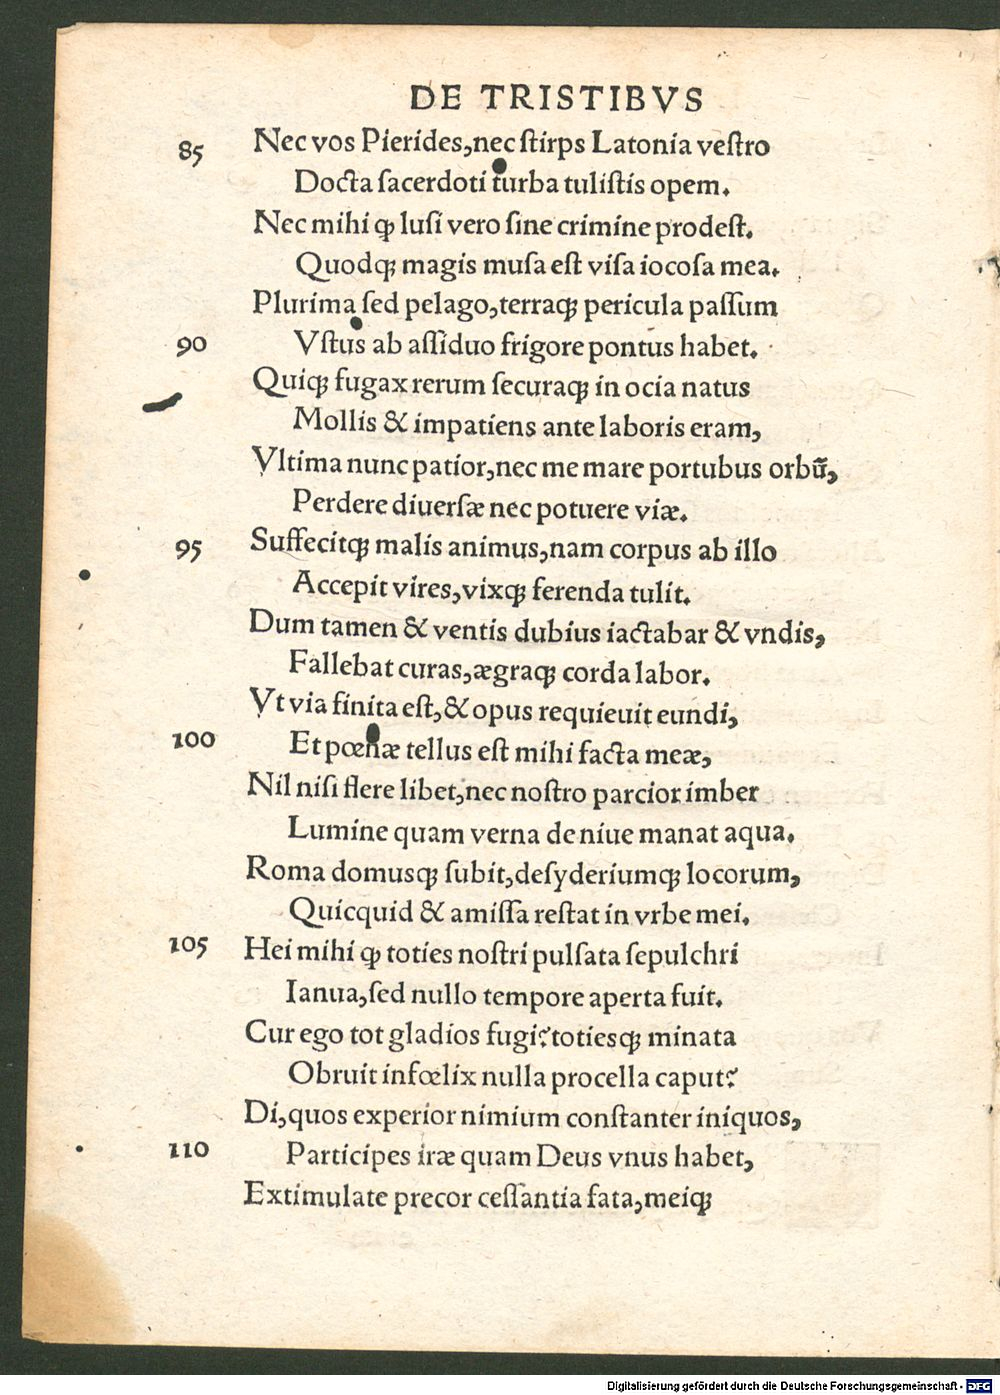 DE TRISTIBVS
85 Nec vos Pierides,nec ſtirps Latonia veſtro
Docta ſacerdoti turba tuliſtis opem.
Nec mihi ꝙ luſi vero ſine crimine prodeſt.
Quodqꝫ magis muſa eſt viſa iocoſa mea.
Plurima ſed pelago,terraqꝫ pericula paſſum
90 Vſtus ab aſſiduo frigore pontus habet.
Quiqꝫ fugax rerum ſecuraqꝫ in ocia natus
Mollis & impatiens ante laboris eram,
Vltima nunc patior,nec me mare portubus orbū,
Perdere diuerſæ nec potuere viæ.
95 Suffecitqꝫ malis animus,nam corpus ab illo
Accepit vires,vixqꝫ ferenda tulit.
Dum tamen & ventis dubius iactabar & vndis,
Fallebat curas,ægraqꝫ corda labor.
Vt via finita eſt,& opus requieuit eundi,
100 Et pœnæ tellus eſt mihi facta meæ,
Nil niſi flere libet,nec noſtro parcior imber
Lumine quam verna de niue manat aqua.
Roma domusqꝫ ſubit,deſyderiumqꝫ locorum,
Quicquid & amiſſa reſtat in vrbe mei.
105 Hei mihi ꝙ toties noſtri pulſata ſepulchri
Ianua,ſed nullo tempore aperta fuit.
Cur ego tot gladios fugi?totiesqꝫ minata
Obruit infœlix nulla procella caput?
Di,quos experior nimium conſtanter iniquos,
110 Participes iræ quam Deus vnus habet,
Extimulate precor ceſſantia fata,meiqꝫ
Digitalisierung gefördert durch die Deutsche Forschungsgemeinschaft - DFG